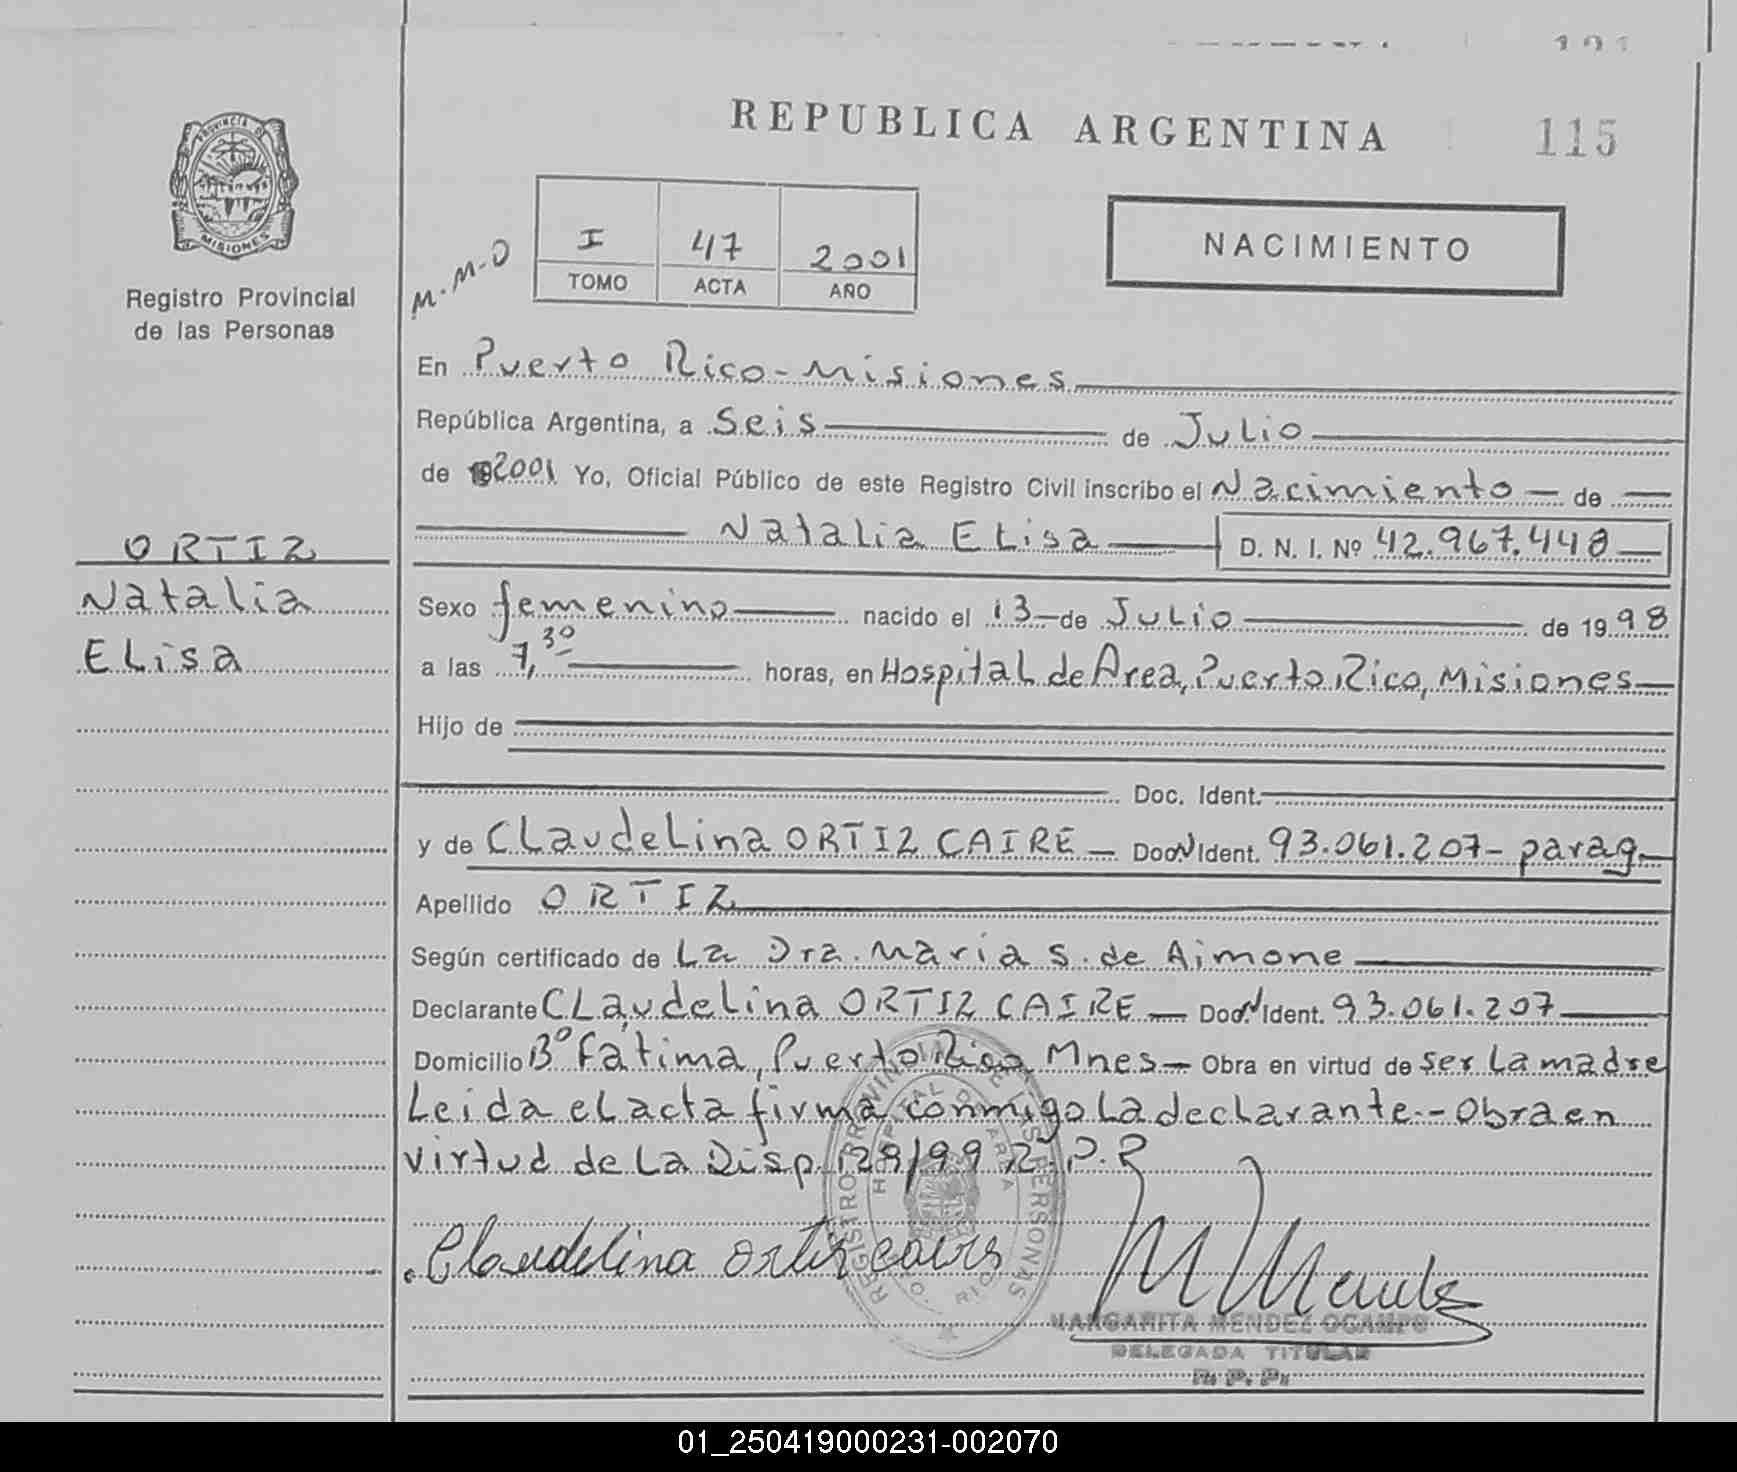 REPUBLICA ARGENTINA
115
PROVINCIA D
MISIONES
Registro Provincial
de las Personas
M.M-O
I 47 2001
TOMO ACTA AÑO
NACIMIENTO
En Puerto Rico-Misiones
República Argentina, a Seis de Julio
de 2001 Yo, Oficial Público de este Registro Civil inscribo el Nacimiento - de
Natalia Elisa D. N. I. Nº 42.967.448
ORTIZ
Natalia
Elisa
Sexo femenino nacido el 13 de Julio de 1998
a las 7,30 horas, en Hospital de Area, Puerto Rico, Misiones
Hijo de
Doc. Ident.
y de Claudelina ORTIZ CAIRE - Doc N Ident. 93.061.207 - parag.
Apellido ORTIZ
Según certificado de La Dra. Maria S. de Aimone
Declarante Claudelina ORTIZ CAIRE - Doc. N Ident. 93.061.207
Domicilio Bº Fatima, Puerto Rico Mnes - Obra en virtud de ser La madre
Leida el acta firma conmigo La declarante.- Obra en
virtud de La Disp. 128/99 R.P.P
REGISTRO PROVINCIAL DE LAS PERSONAS
HOSPITAL DE AREA
RIO
Claudelina Ortiz caire
M Mendez
MARGARITA MENDEZ OCAMPO
DELEGADA TITULAR
R. P. P.
01_250419000231-002070